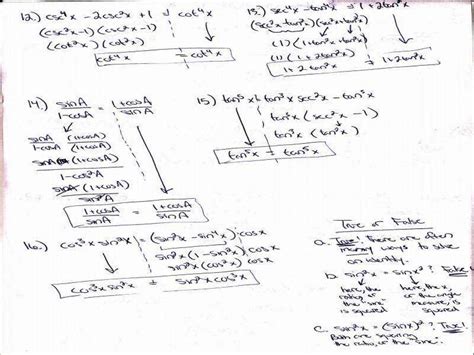 12.) csc⁴x - 2csc²x + 1 = cot⁴x
(csc²x-1)(csc²x-1)
(cot²x)(cot²x)
cot⁴x = cot⁴x
13.) sec⁴x - tan⁴x = 1+2tan²x
(sec²x-tan²x)(sec²x+tan²x)
(1)(1+tan²x+tan²x)
(1)(1+2tan²x)
1+2tan²x = 1+2tan²x
14.) sinA/1-cosA = 1+cosA/sinA
sinA/1-cosA (1+cosA)/(1+cosA)
sinA(1+cosA)/1-cos²A
sinA(1+cosA)/sin²A
1+cosA/sinA = 1+cosA/sinA
15.) tan³x sec²x - tan³x
tan³x(sec²x-1)
tan³x(tan²x)
tan⁵x = tan⁵x
16.) cos³x sin²x = (sin²x-sin⁴x) cosx
sin²x(1-sin²x)cosx
sin²x(cos²x)cosx
cos³x sin²x = sin²x cos³x
True or False
a. True. There are often
many ways to solve
an identity.
b. sin²x = sinx²? False
here, the ratio of the "sine" is squared
here, the x, or the angle measure, is squared
c. sin²x = (sinx)²? True
Both are squaring
the ratio, of the "sine".